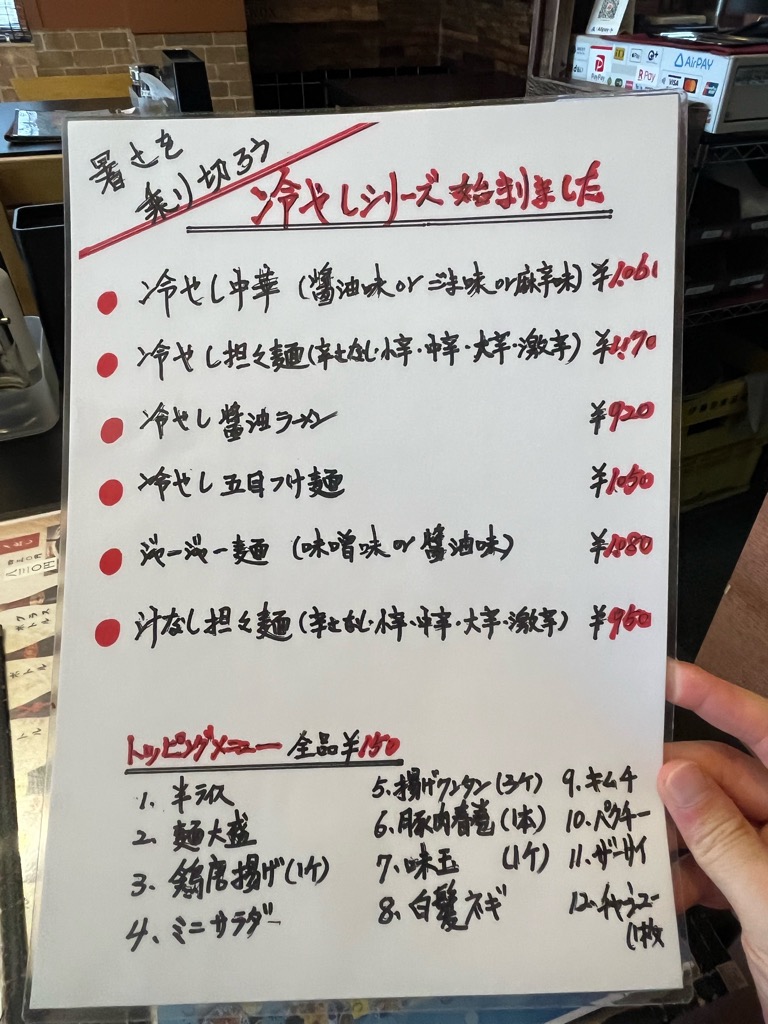 暑さを
乗り切ろう
冷やしシリーズ始まりました
冷やし中華 (醤油味 or ごま味 or 麻辛味) ¥1,061
冷やし担々麺(辛さなし・小辛・中辛・大辛・激辛) ¥1,170
冷やし醤油ラーメン ¥920
冷やし五目つけ麺 ¥1,050
ジャージャー麺 (味噌味 or 醤油味) ¥1,080
汁なし担々麺(辛さなし・小辛・中辛・大辛・激辛) ¥960
トッピングメニュー 全品¥150
1. 半ライス
2. 麺大盛
3. 鶏唐揚げ(1ケ)
4. ミニサラダ
5. 揚げワンタン(3ケ)
6. 豚肉春巻(1本)
7. 味玉 (1ケ)
8. 白髪ネギ
9. キムチ
10. パクチー
11. ザーサイ
12. チャーシュー
(1枚)
AirPAY
PayPay
R Pay
VISA
ボトル